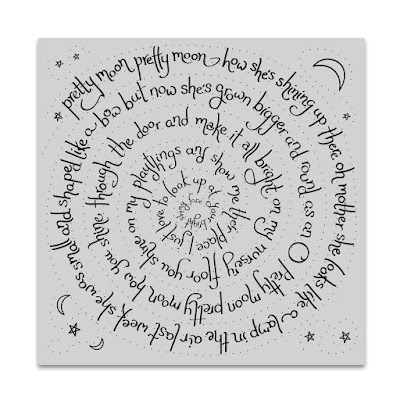 pretty moon pretty moon how she's shining up there oh mother she looks like a lamp in the air last week she was small and shaped like a bow but now she's grown bigger and round as an O Pretty moon pretty moon how you shine through the door and make it all bright on my nursey floor you shine on my playthings and show me their place I just love to look up at your bright face